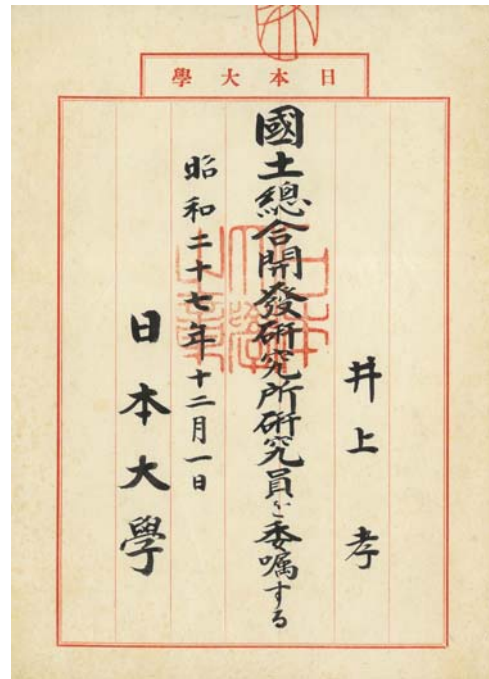 日本大學
井上孝
國土總合開發研究所研究員を委嘱する
昭和二十七年十二月一日
日本大學